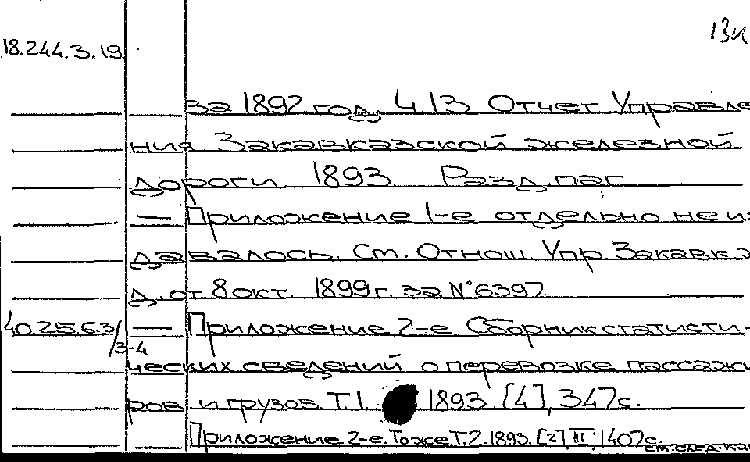 13к
18.244.3.19
за 1892 год. 413. Отчет Управле
ния Закавказской железной
дороги. 1893. Разд. паг.
— Приложение 1-е отдельно не из
давалось. См. Отнош. Упр. Закавк. ж.
д. от 8 окт. 1899 г. за № 6397
40.25.6.3/3-4 — Приложение 2-е Сборник статисти-
ческих сведений о перевозке пассажи
ров и грузов. Т.1. 1893. [4], 347с.
Приложение 2-е. То же Т.2. 1893. [2] II, 407с.
см. след. к